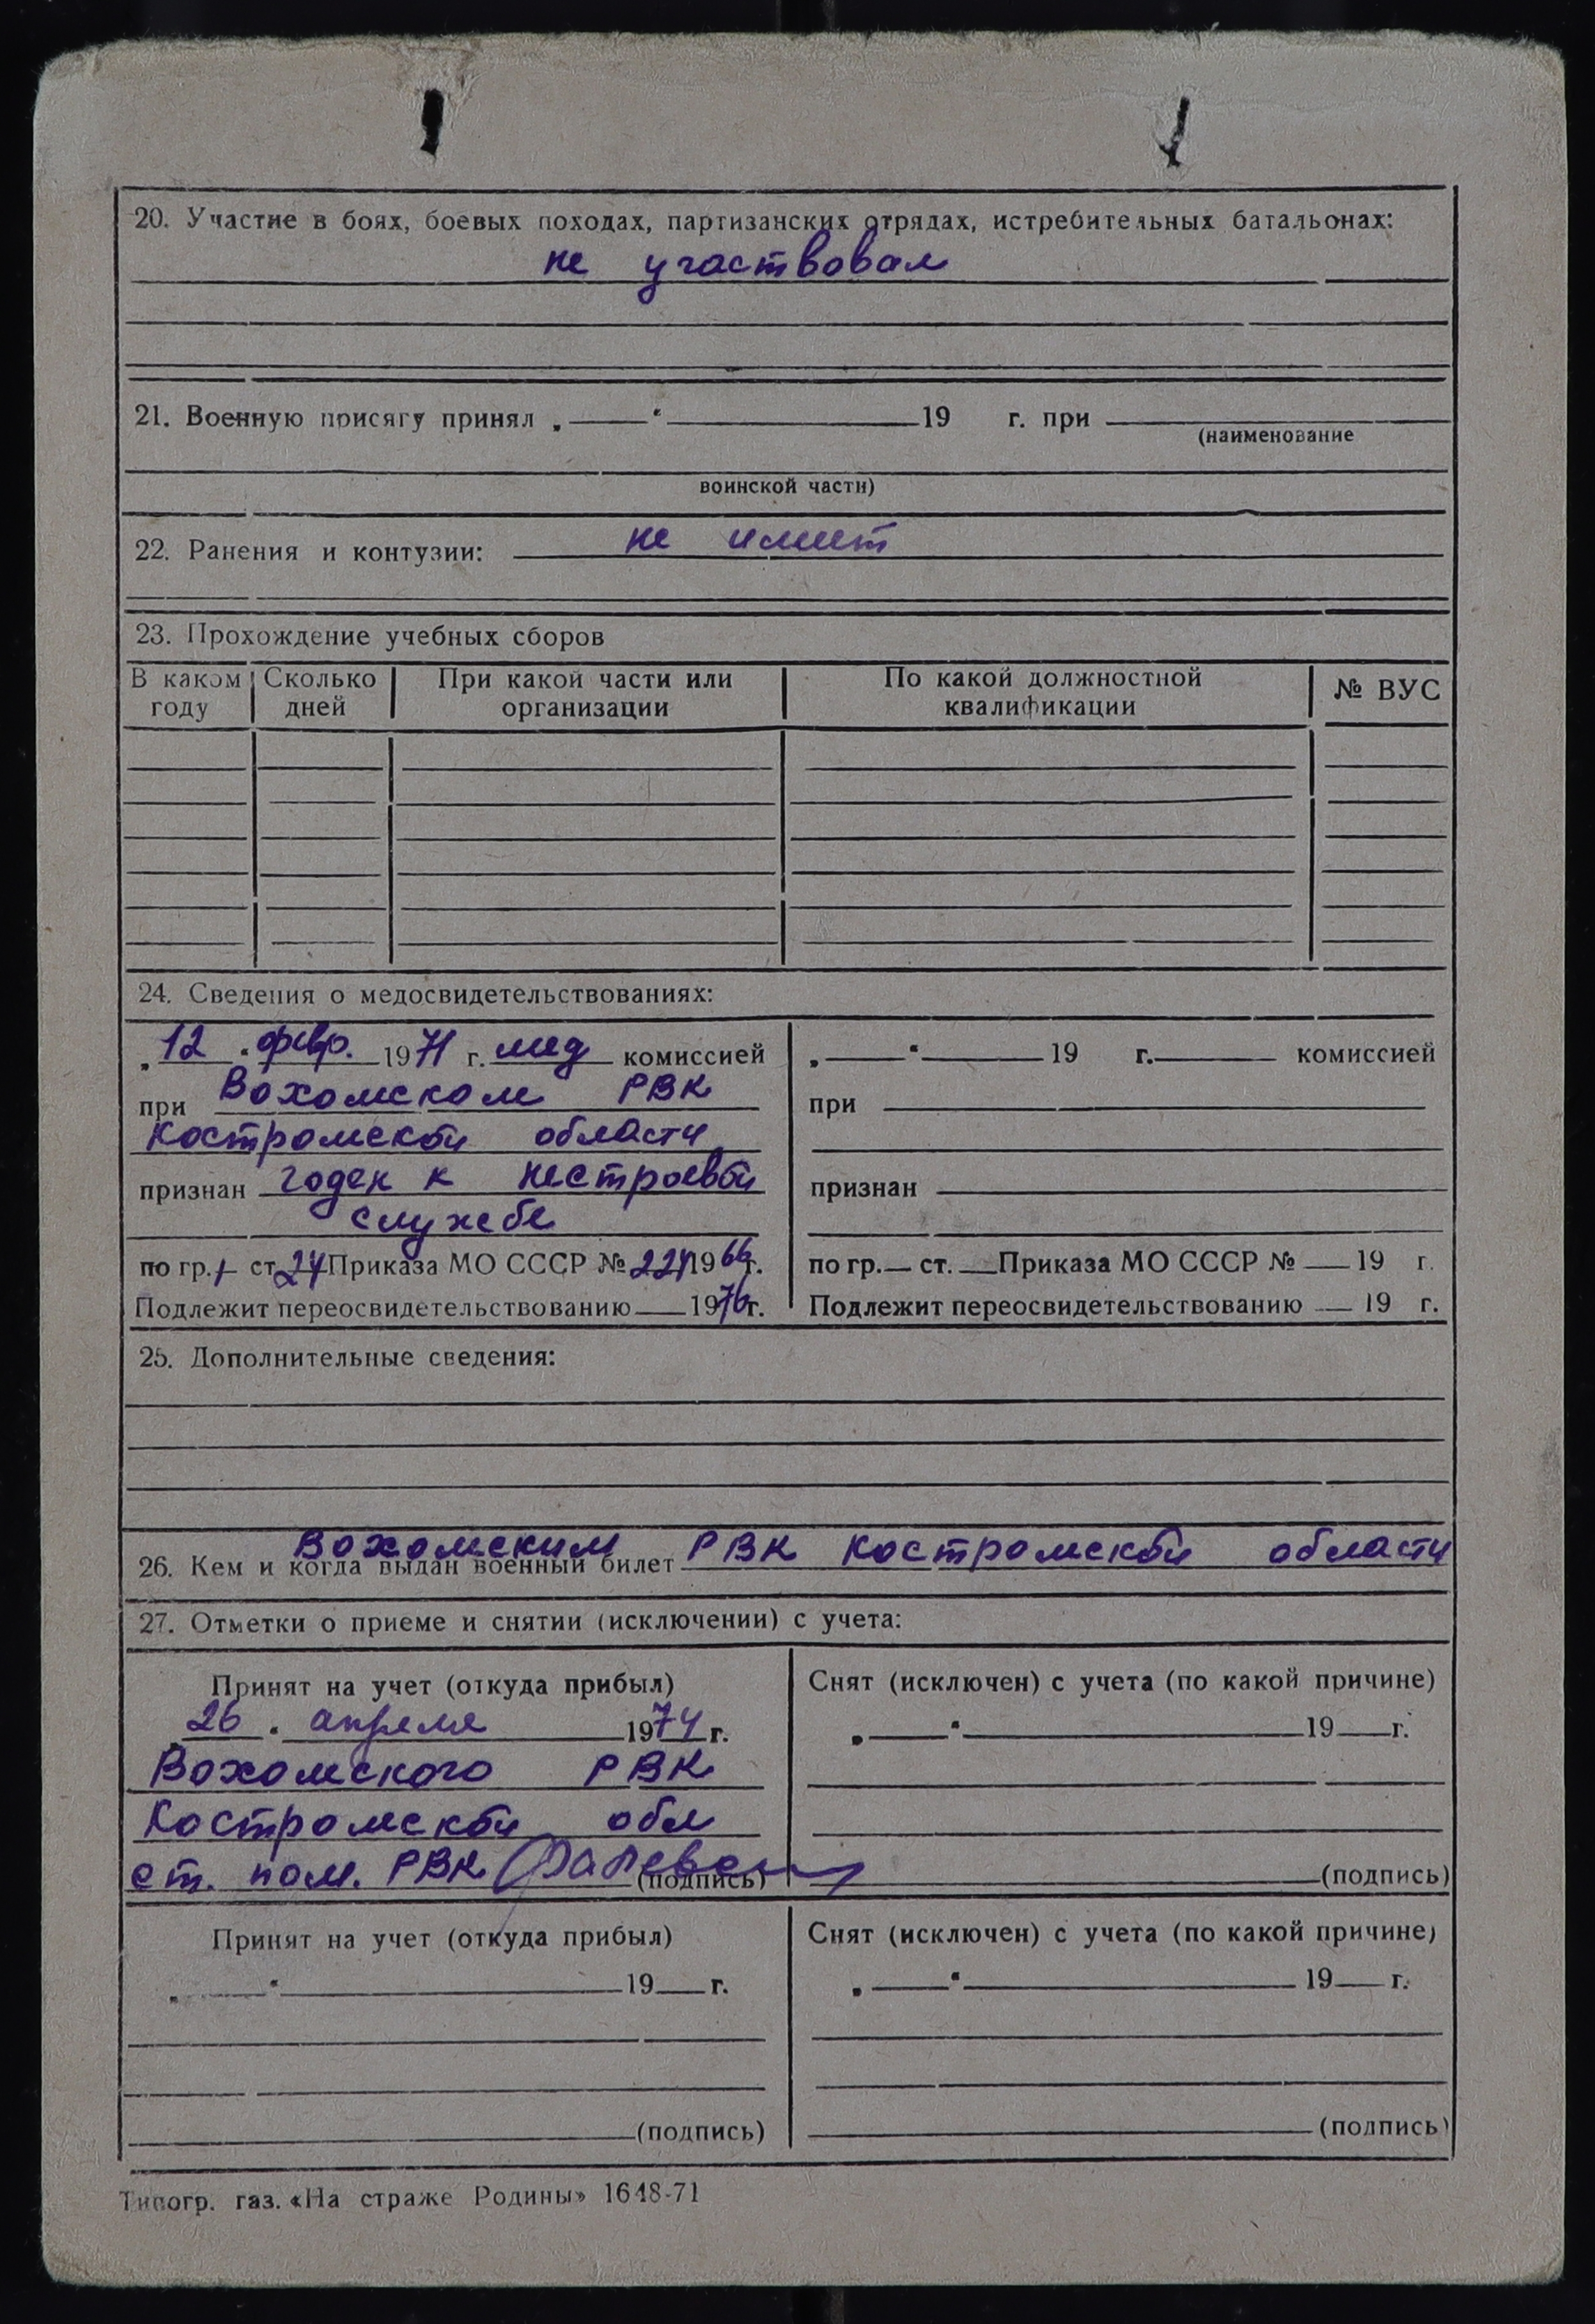 20. Участие в боях, боевых походах, партизанских отрядах, истребительных батальонах:
не участвовал
21. Военную присягу принял „ “ 19 г. при
(наименование
воинской части)
22. Ранения и контузии: не имеет
23. Прохождение учебных сборов
В каком году Сколько дней При какой части или организации По какой должностной квалификации № ВУС
24. Сведения о медосвидетельствованиях:
„12“ февр. 1971 г. мед комиссией
при Вохомском РВК
Костромской области
признан годен к нестроевой
службе
по гр. 1 ст. 24 Приказа МО СССР № 221 1966 г.
Подлежит переосвидетельствованию 1976 г.
„ “ 19 г. комиссией
при
признан
по гр. ст. Приказа МО СССР № 19 г.
Подлежит переосвидетельствованию 19 г.
25. Дополнительные сведения:
26. Кем и когда выдан военный билет Вохомским РВК Костромской области
27. Отметки о приеме и снятии (исключении) с учета:
Принят на учет (откуда прибыл)
26 апреля 1974 г.
Вохомского РВК
Костромской обл
ст. пом. РВК
(подпись)
Снят (исключен) с учета (по какой причине)
„ “ 19 г.
(подпись)
Принят на учет (откуда прибыл)
„ “ 19 г.
(подпись)
Снят (исключен) с учета (по какой причине)
„ “ 19 г.
(подпись)
Типогр. газ. «На страже Родины» 1648-71